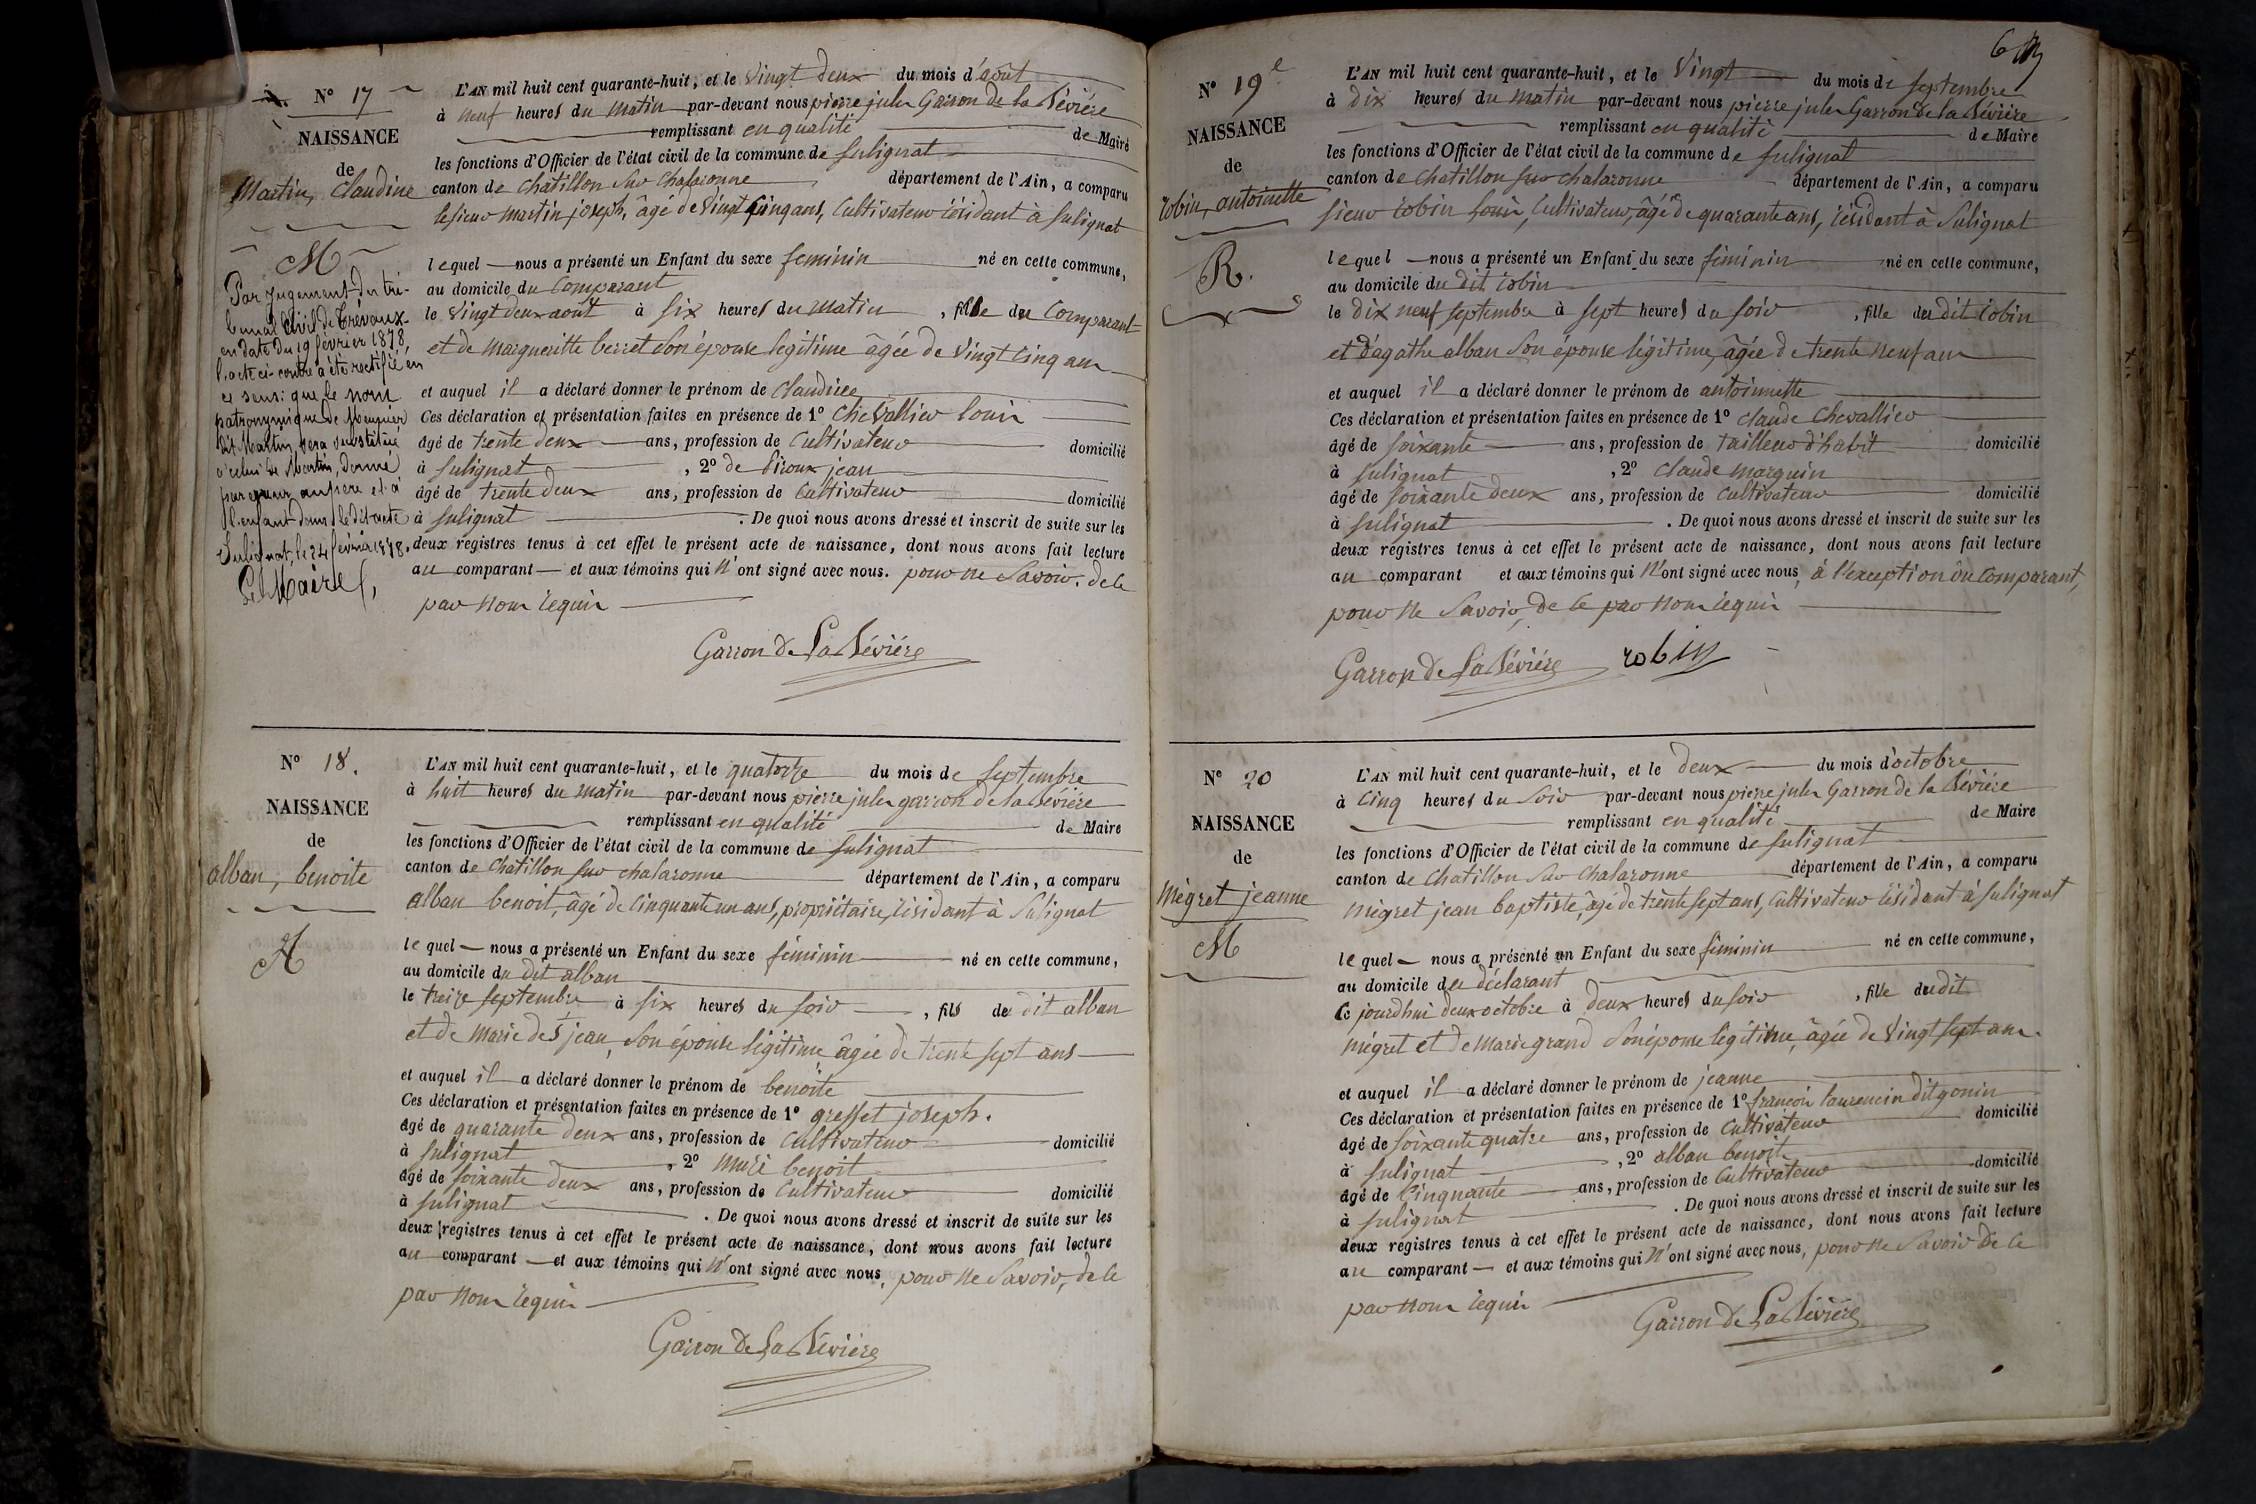 N° 17
NAISSANCE
de
Martin, Claudine
M
Par jugement du tri-
bunal civil de Trévoux
en date du 19 février 1878,
l'acte ci-contre a été rectifié en
ce sens: que le nom
patronymique de Meunier
dit Martin, sera substitué
à celui de Martin, donné
par erreur au père et à
l'enfant dans le dit acte
Sulignat, le 24 février 1878.
Le Maire
L'AN mil huit cent quarante-huit, et le Vingt deux du mois d'août
à neuf heures du matin par-devant nous pierre jules Garron de la Bévière
remplissant en qualité de Maire
les fonctions d'Officier de l'état civil de la commune de Sulignat
canton de Chatillon sur Chalaronne département de l'Ain, a comparu
le sieur Martin joseph, âgé de Vingt Cinq ans, Cultivateur résidant à Sulignat
lequel nous a présenté un Enfant du sexe feminin né en cette commune,
au domicile du Comparant
le Vingt deux août à Six heures du matin, fille du Comparant
et de margueritte berret son épouse legitime âgée de Vingt Cinq ans
et auquel il a déclaré donner le prénom de Claudine
Ces déclaration et présentation faites en présence de 1° Chevallier louis
âgé de trente deux ans, profession de Cultivateur domicilié
à Sulignat, 2° de Biroux jean
âgé de trente deux ans, profession de Cultivateur domicilié
à Sulignat. De quoi nous avons dressé et inscrit de suite sur les
deux registres tenus à cet effet le présent acte de naissance, dont nous avons fait lecture
au comparant et aux témoins qui n'ont signé avec nous. pour ne Savoir, de ce
par nous requis
Garron de La Bévière
N° 18.
NAISSANCE
de
alban, benoite
A
L'AN mil huit cent quarante-huit, et le quatorze du mois de Septembre
à huit heures du matin par-devant nous pierre jules garron de la Bévière
remplissant en qualité de Maire
les fonctions d'Officier de l'état civil de la commune de Sulignat
canton de Chatillon sur chalaronne département de l'Ain, a comparu
alban benoit, âgé de Cinquante un ans, propriétaire, résidant à Sulignat
lequel nous a présenté un Enfant du sexe féminin né en cette commune,
au domicile du dit alban
le treize septembre à six heures du soir, fils du dit alban
et de marie de St jean, Son épouse légitime âgée de trente sept ans
et auquel il a déclaré donner le prénom de benoite
Ces déclaration et présentation faites en présence de 1° greffet joseph.
âgé de quarante deux ans, profession de Cultivateur domicilié
à Sulignat, 2° muré benoit
âgé de soixante deux ans, profession de Cultivateur domicilié
à Sulignat. De quoi nous avons dressé et inscrit de suite sur les
deux registres tenus à cet effet le présent acte de naissance, dont nous avons fait lecture
au comparant et aux témoins qui n'ont signé avec nous, pour ne Savoir, de ce
par nous requis
Garron de La Bévière
N° 19e
NAISSANCE
de
robin, antoinette
R.
L'AN mil huit cent quarante-huit, et le Vingt du mois de septembre
à dix heures du matin par-devant nous pierre jules Garron de la Bévière
remplissant en qualité de Maire
les fonctions d'Officier de l'état civil de la commune de Sulignat
canton de Chatillon sur chalaronne département de l'Ain, a comparu
sieur robin louis, Cultivateur, âgé de quarante ans, résidant à Sulignat
lequel nous a présenté un Enfant du sexe féminin né en cette commune,
au domicile du dit robin
le dix neuf septembre à sept heures du soir, fille du dit robin
et d'agathe alban Son épouse légitime, âgée de trente neuf ans
et auquel il a déclaré donner le prénom de antoinette
Ces déclaration et présentation faites en présence de 1° Claude Chevallier
âgé de soixante ans, profession de tailleur d'habit domicilié
à Sulignat, 2° Claude marguin
âgé de soixante deux ans, profession de Cultivateur domicilié
à Sulignat. De quoi nous avons dressé et inscrit de suite sur les
deux registres tenus à cet effet le présent acte de naissance, dont nous avons fait lecture
au comparant et aux témoins qui n'ont signé avec nous, à l'exception du Comparant,
pour ne Savoir, de ce par nous requis
Garron de La Bévière robin
N° 20
NAISSANCE
de
mégret jeanne
M
L'AN mil huit cent quarante-huit, et le deux du mois d'octobre
à Cinq heures du soir par-devant nous pierre jules Garron de la Bévière
remplissant en qualité de Maire
les fonctions d'Officier de l'état civil de la commune de Sulignat
canton de Chatillon sur Chalaronne département de l'Ain, a comparu
mégret jean baptiste, âgé de trente sept ans, Cultivateur résidant à Sulignat
lequel nous a présenté un Enfant du sexe féminin né en cette commune,
au domicile du déclarant
ce jourdhui deux octobre à deux heures du soir, fille du dit
mégret et de marie grand Son épouse légitime, âgée de Vingt sept ans.
et auquel il a déclaré donner le prénom de jeanne
Ces déclaration et présentation faites en présence de 1° françois laurencin dit gonin
âgé de soixante quatre ans, profession de Cultivateur domicilié
à Sulignat, 2° alban benoit
âgé de Cinquante ans, profession de Cultivateur domicilié
à Sulignat. De quoi nous avons dressé et inscrit de suite sur les
deux registres tenus à cet effet le présent acte de naissance, dont nous avons fait lecture
au comparant et aux témoins qui n'ont signé avec nous, pour ne Savoir de ce
par nous requis
Garron de La Bévière